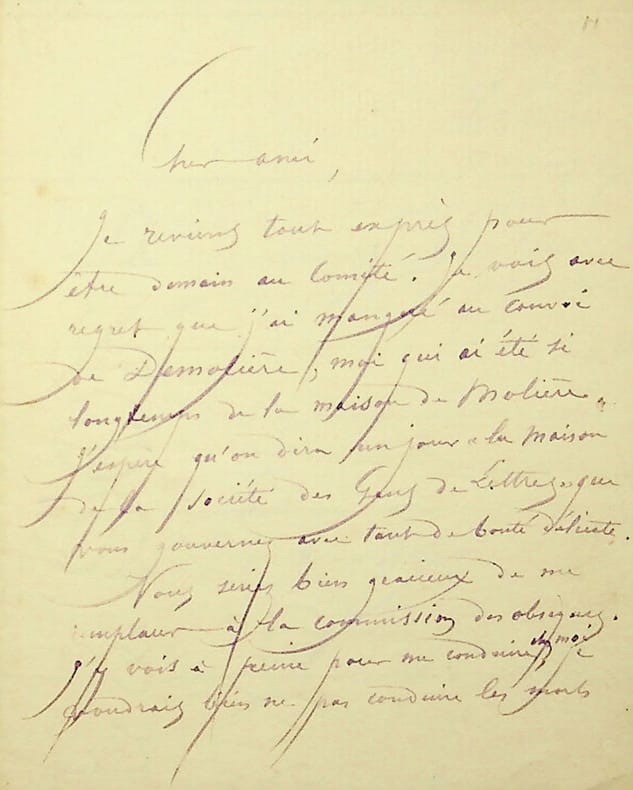 Cher ami,
Je reviens tout exprès pour
être demain au Comité. Je vois avec
regret que j'ai manqué au convoi
de Demolière, moi qui ai été si
longtemps de la maison de Molière.
J'espère qu'on dira un jour la maison
de la Société des Gens de Lettres que
vous gouvernez avec tant de bonté délicate.
Vous seriez bien gracieux de me
remplacer à la commission des obsèques.
J'y vois à peine pour me conduire chez moi, je
voudrais bien ne pas conduire les morts